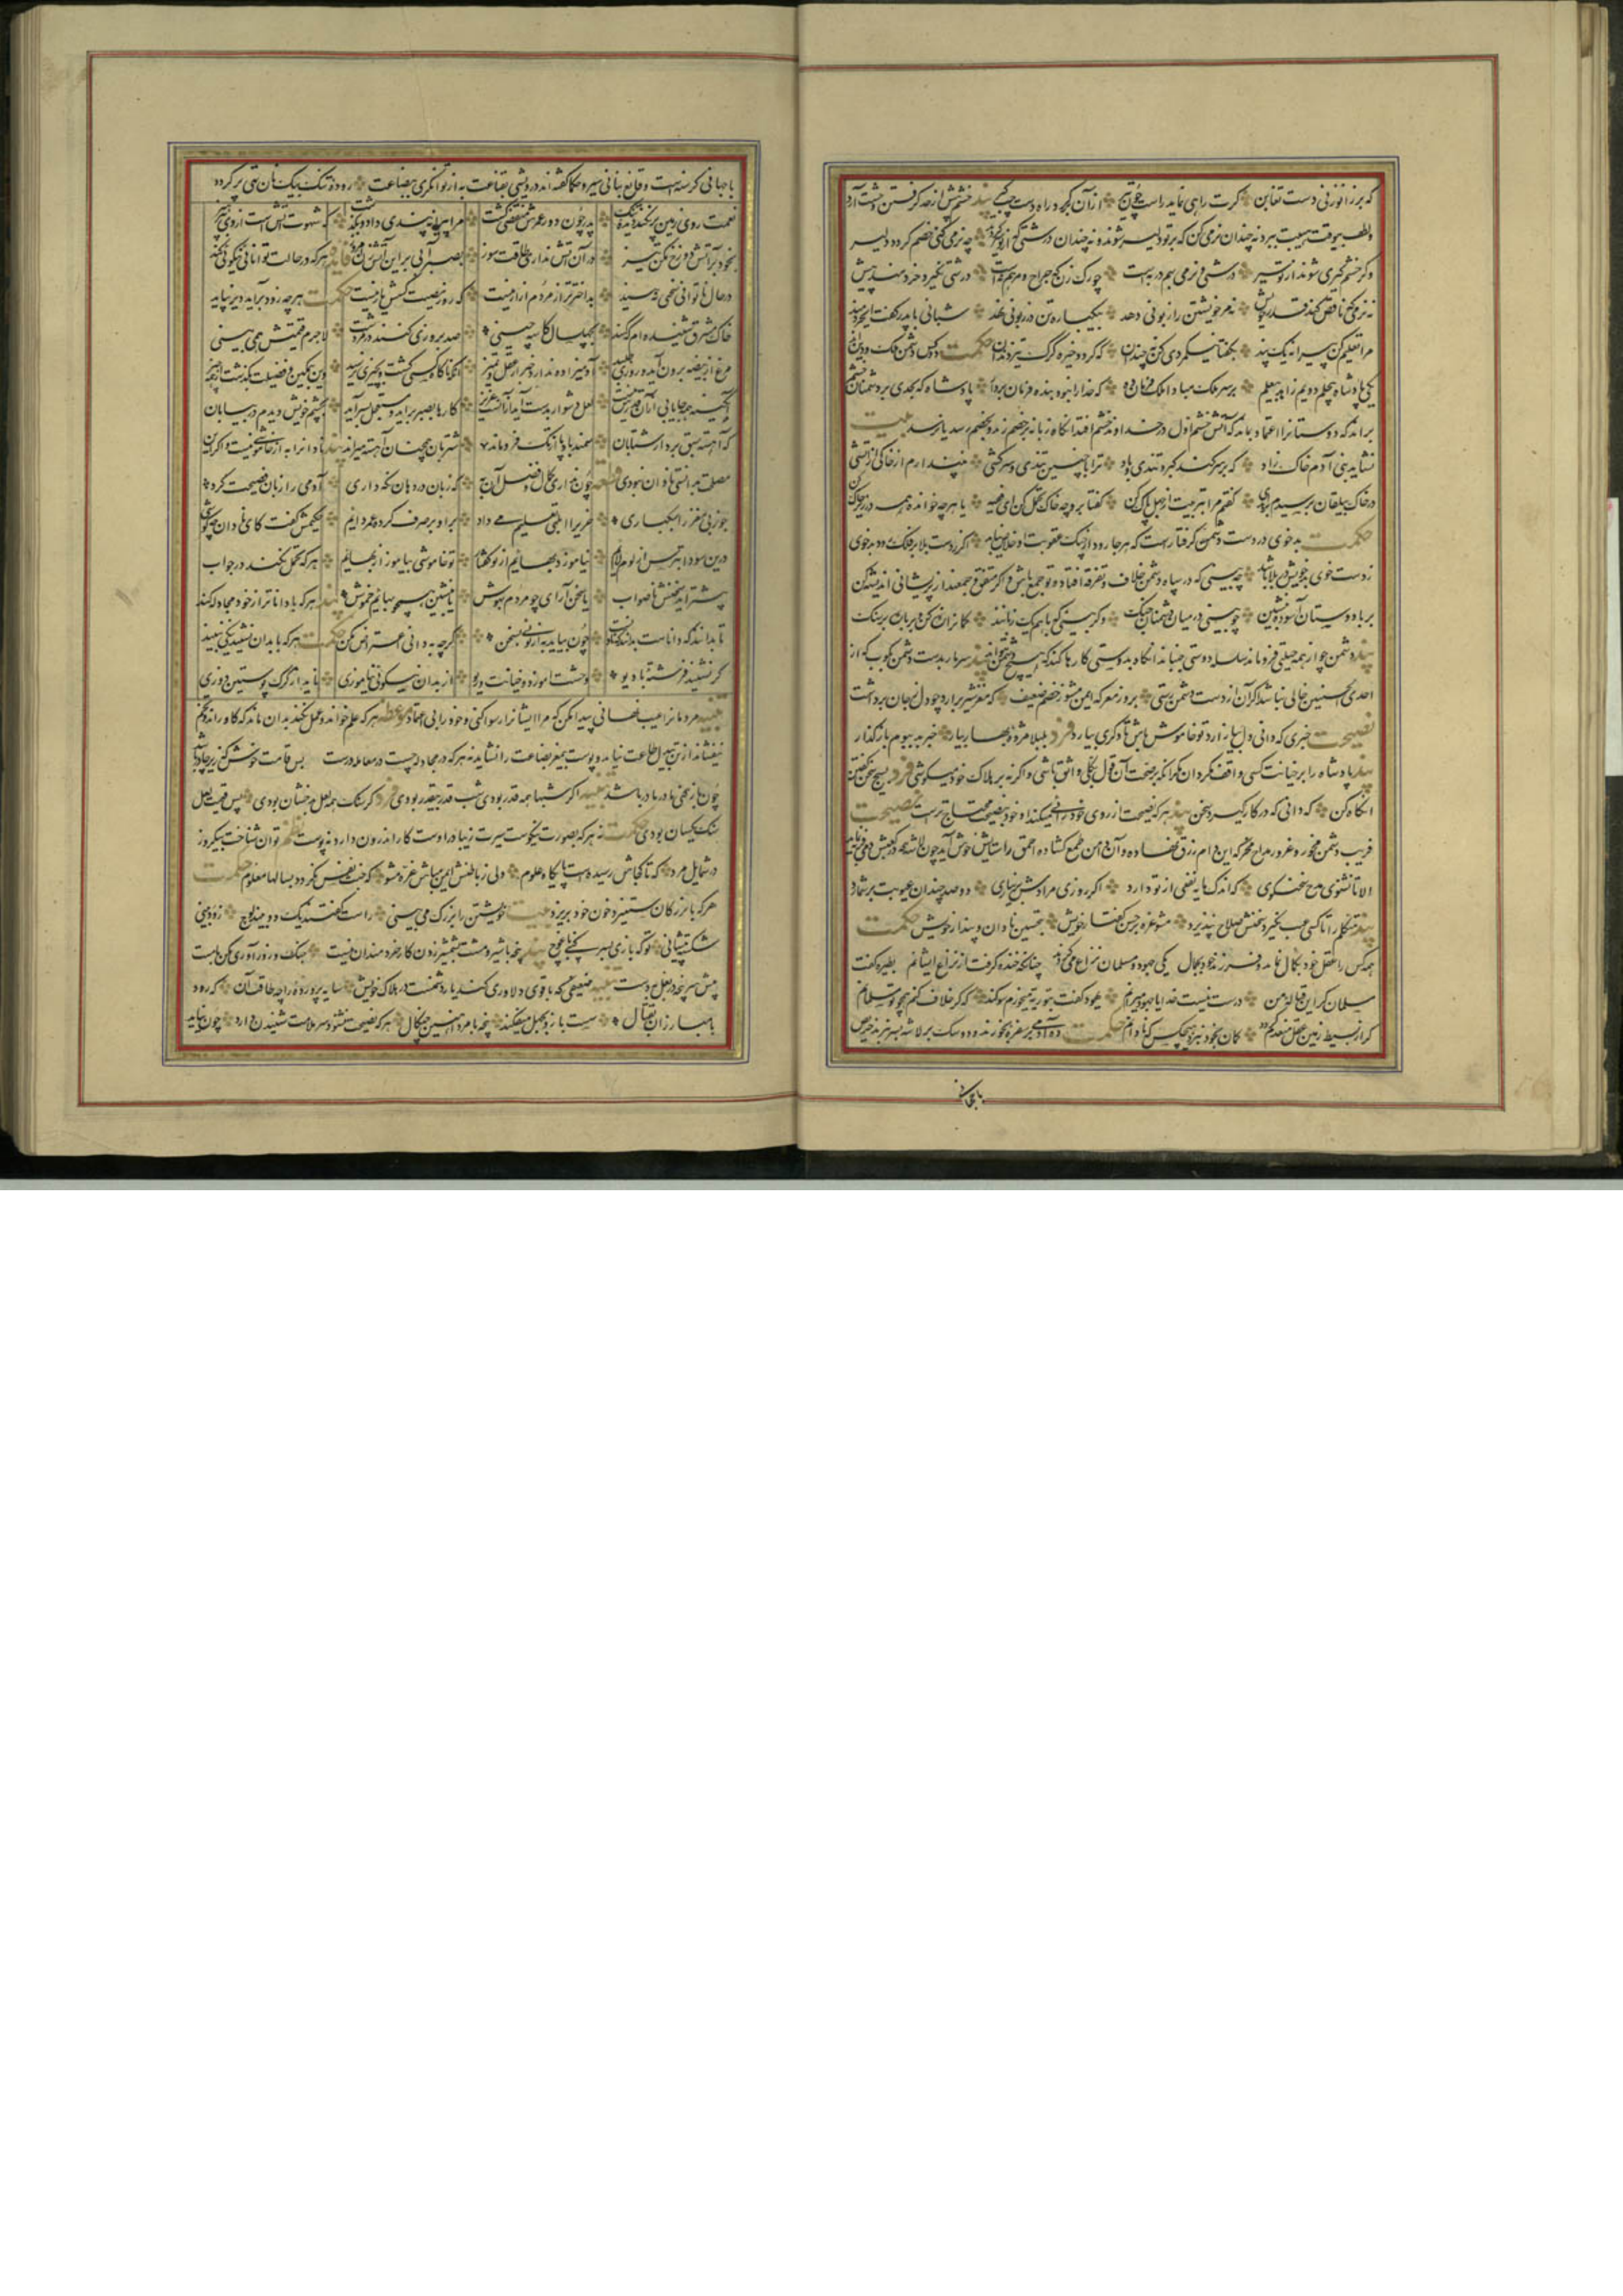 که بر زانو زنی دست تغابن گرت راهی نماید راست چون تیر ازان برگرد و راه دست چپ گیر پند خشم بیش از حد گرفتن وحشت آرد
و لطف بیوقت هیبت ببرد نه چندان نرمی کن که بر تو دلیر شوند و نه چندان درشتی که از تو چو نرمی کنی خصم گردد دلیر
وگر خشم گیری شوند از تو سیر درشتی و نرمی بهم در به است چو رگ زن که جراح و مرهم نه است درشتی نگیرد خردمند پیش
نه نرمی که ناقص کند قدر خویش نه مر خویشتن را فزونی دهد نه یکباره تن در زبونی نهد شبانی با پدر گفت ای خردمند
مرا تعلیم کن پیرانه یک پند بگفتا نیکمردی کن نه چندان که گردد خیره گرگ تیز دندان حکمت دو کس دشمن ملک و دین اند
یکی پادشاه بی حلم دویم زاهد بی علم بر سر ملک مباد آن ملک فرمان ده که خدا را نبود بنده فرمان بردار پادشاه که بجدی بر دشمنان خشم
براند که دوستانرا اعتماد بماند که آتش خشم اول در خداوند خشم افتد آنگاه زبانه بر خصم زند و بخصم رسد یا نرسد بیت
نشاید بنی آدم خاک زاد که بر سر کند کبر و تندی و باد ترا با چنین تندی و سرکشی نپندارم از خاکی از آتشی
در خاک بیلقان برسیدم بعابدی گفتم مرا بتربیت از جهل پاک کن گفتا برو چو خاک تحمل کن ای فقیه یا هر چه خوانده همه در زیر خاک کن
حکمت بدخوی در دست دشمن گرفتارست که هر جا رود از چنگ عقوبت او خلاص نیابد اگر ز دست بلا بر فلک رود بدخوی
ز دست خوی بد خویش در بلا باشد چو بینی که در سپاه دشمن خلاف و تفرقه افتاده تو جمع باش و اگر متفق و جمعند از پریشانی اندیشه کن
برو با دوستان آسوده بنشین چو بینی در میان دشمنان جنگ وگر بینی که با هم یک زبانند کمانرا زه کن و بر باره بر سنگ
پند دشمن چو از همه حیلتی فرو ماند سلسله دوستی جنباند آنگاه بدوستی کارها کند که هیچ دشمن نتواند پند سر مار بدست دشمن بکوب که از
احدی الحسنیین خالی نباشد اگر آن از دست دشمن رستی بروز معرکه ایمن مشو ز خصم ضعیف که مغز شیر برآرد چو دل ز جان برداشت
نصیحت خبری که دانی دل بیازارد تو خاموش باش تا دیگری بیارد فرد بلبلا مژده بهار بیار خبر بد ببوم بازگذار
پند پادشاه را بر خیانت کسی واقف مگردان مگر آنکه بر صحت آن قول بکلی واثق باشی واگر نه بر هلاک خود میکوشی فرد بسیج سخن گفتن
آنگاه کن که دانی که در کار گیرد سخن پند هر که نصیحت از روی خود رائی میکند او خود بنصیحت محتاج ترست نصیحت
فریب دشمن مخور و غرور مداح مخر که این دام زرق نهاده و آن دامن طمع گشاده احمق را ستایش خوش آید چون لاشه که در کعبش دمی فربه نماید
الا تا نشنوی مدح سخنگوی که اندک مایه نفعی از تو دارد اگر روزی مرادش بر نیاری دو صد چندان عیوبت بر شمارد
پند متکلم را تا کسی عیب نگیرد سخنش صلاح نپذیرد مشو غره بر حسن گفتار خویش بتحسین نادان و پندار خویش حکمت
همه کس را عقل خود بکمال نماید و فرزند خود بجمال یکی جهود و مسلمان نزاع میکردند چنانکه خنده گرفت از نزاع ایشانم بطیره گفت
مسلمان گر این قباله من درست نیست خدایا جهود میرانم یهود گفت بتوریه میخورم سوگند که گر خلاف کنم همچو تو مسلمانم
گر از بسیط زمین عقل منعدم گردد گمان بخود نبرد هیچکس که نادانم حکمت ده آدمی بر سفره بخورند و دو سگ بر لاشه بسر نبرند حریص
با جهانی
با جهانی گرسنه است و قانع بنانی سیر و حکما گفته اند درویشی بقناعت به از توانگری ببضاعت روده تنگ بیک نان تهی پر گردد
نعمت روی زمین پر نکند دیده تنگ پدر چون دور عمرش منقضی گشت مرا این یک پندی داد و بگذشت که شهوت آتش است از وی بپرهیز
بخود بر آتش دوزخ مکن تیز در آن آتش نداری طاقت سوز بصبر آبی برین آتش زن امروز فایده هر که در حالت توانائی نکوئی نکند
در حال ناتوانی سختی بیند بد اختر تر از مردم آزار نیست که روز مصیبت کسش یار نیست حکمت هر چه زود برآید دیر نپاید
خاک مشرق شنیده ام که کنند بچهل سال کاسه چینی صد بروزی کنند در مردشت لاجرم قیمتش همی بینی
مرغ از بیضه برون آید و روزی طلبد آدمی زاده ندارد خبر از عقل و تمیز آنکه ناگاه کسی گشت بچیزی نرسید وین بتمکین و فضیلت بگذشت از همه چیز
آبگینه همه جا یابی از آن قدرش نیست لعل دشوار بدست آید از آنست عزیز کارها بصبر برآید و مستعجل بسر آید بچشم خویش دیدم در بیابان
که آهسته سبق برد از شتابان سمند بادپا از تک فرو ماند شتربان همچنان آهسته میراند پند نادانرا به از خاموشی نیست و اگر این
مصلحت بدانستی نادان نبودی قطعه چون نداری کمال و فضل آن به که زبان در دهان نگه داری آدمی را زبان فضیحت کرد
جوز بی مغز را سبکساری خریرا ابلهی تعلیم می داد برو بر صرف کرده عمر دایم حکیمش گفت کای نادان چه کوشی
درین سودا بترس از لوم لایم نیاموزد بهایم از تو گفتار تو خاموشی بیاموز از بهایم هر که تامل نکند در جواب
بیشتر آید سخنش ناصواب یا سخن آرای چو مردم بهوش یا بنشین همچو بهایم خموش پند هر که با داناتر از خود مجادله کند
تا بدانند که داناست بدانند که نادان است چون بیاید به از تویی بسخن گرچه به دانی اعتراض مکن حکمت هر که با بدان نشیند نیکی نبیند
گر نشیند فرشته با دیو وحشت آموزد و خیانت و ریو از بدان نیکوئی نیاموزی ناید از گرگ پوستین دوزی
تنبیه مردمانرا عیب نهانی پیدا مکن که مر ایشانرا رسوا کنی و خود را بی اعتماد موعظه هر که علم خواند و عمل نکند بدان ماند که گاو راند و تخم
نیفشاند از تن بیدل طاعت نیاید و پوست بیمغز بضاعت را نشاید نه هر که در مجادله چست در معامله درست بس قامت خوش که زیر چادر باشد
چون باز کنی مادر مادر باشد تنبیه اگر شبها همه قدر بودی شب قدر بیقدر بودی فرد گر سنگ همه لعل بدخشان بودی پس قیمت لعل
و سنگ یکسان بودی حکمت نه هر که بصورت نیکوست سیرت زیبا در اوست کار اندرون دارد نه پوست نظم توان شناخت بیکروز
در شمایل مرد که تا کجاش رسیده است پایگاه علوم ولی ز باطنش ایمن مباش و غره مشو که خبث نفس نگردد بسالها معلوم حکمت
هر که با بزرگان ستیزد خون خود بریزد بیت خویشتن را بزرگ می بینی راست گفتند یک دو بیند لوچ زود بینی
شکسته پیشانی تو که بازی بسر کنی با قوچ پند پنجه با شیر و مشت بشمشیر زدن کار خردمندان نیست جنگ و زور آوری مکن با مست
پیش سرپنجه در بغل نه دست تنبیه ضعیفی که با قوی دلاوری کند یار دشمنست در هلاک خویش سایه پرورده را چه طاقت آن که رود
با مبارزان بقتال سست بازو بجهل میفکند پنجه با مرد آهنین چنگال هر که نصیحت نشنود سر ملامت شنیدن دارد چون نیاید